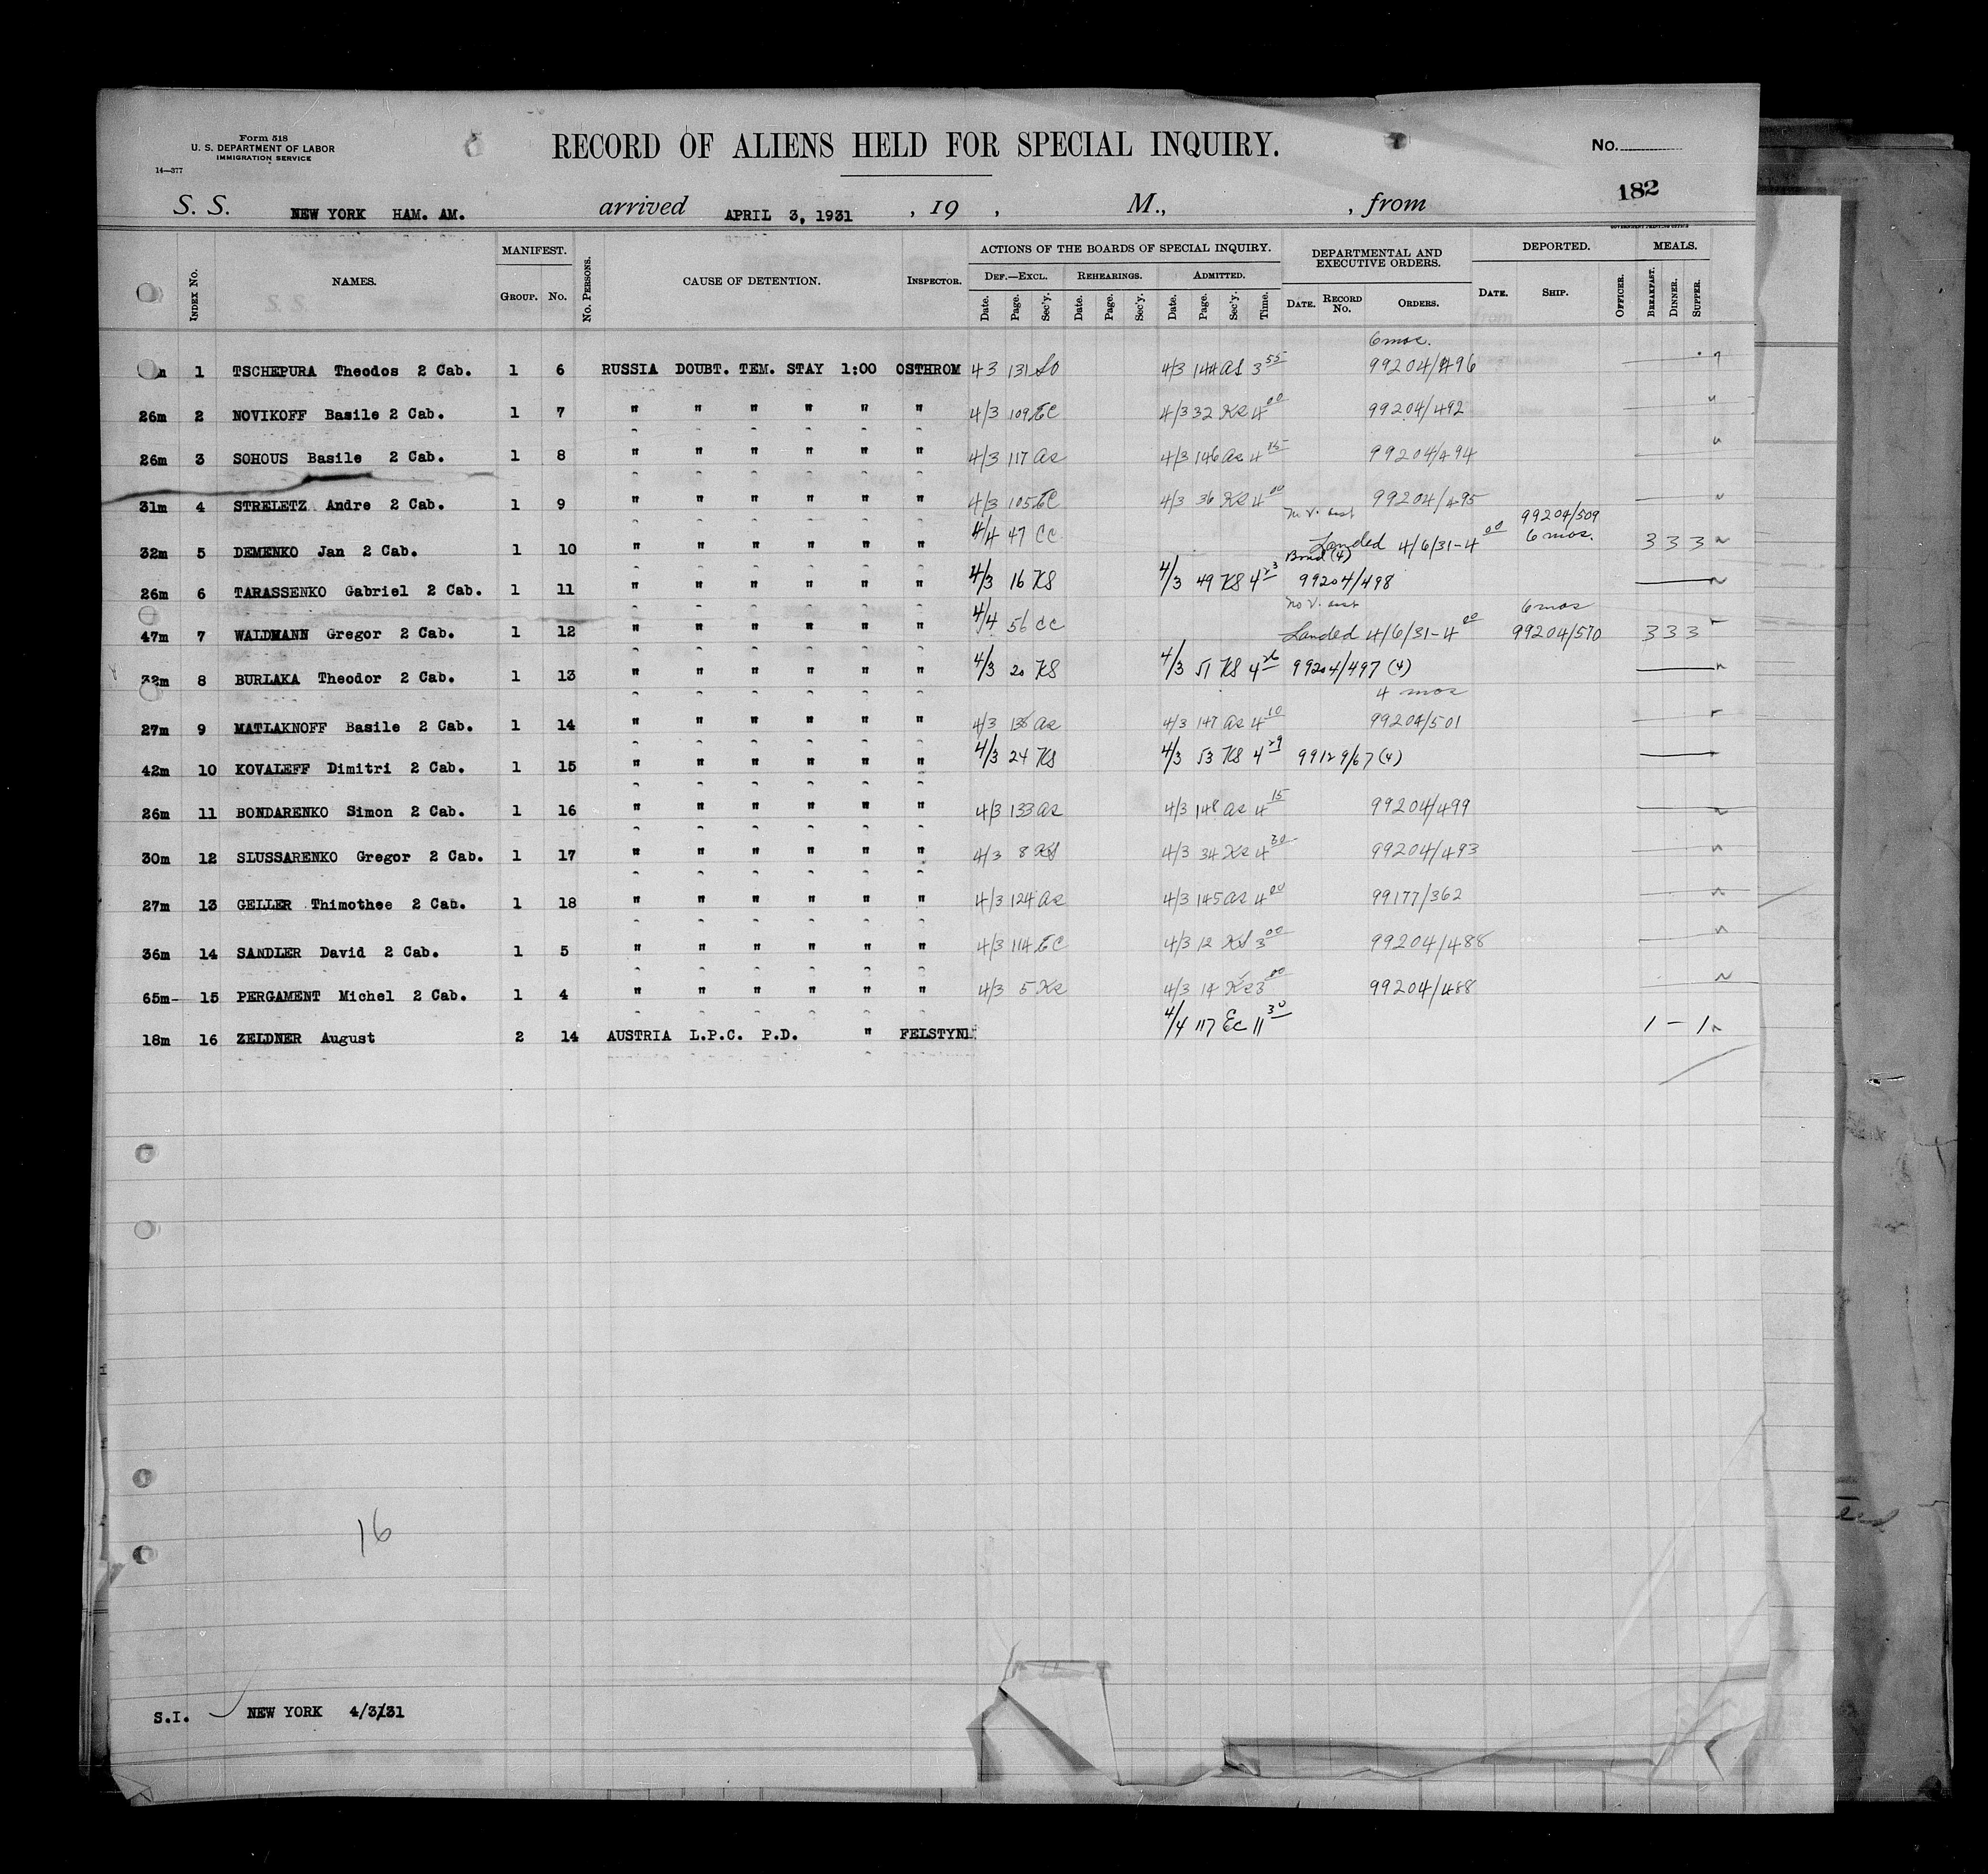 Form 518
U. S. DEPARTMENT OF LABOR
IMMIGRATION SERVICE
14—377
RECORD OF ALIENS HELD FOR SPECIAL INQUIRY.
No.
182
S. S. NEW YORK HAM. AM. arrived APRIL 3, 1931 , 19 , M., , from
GOVERNMENT PRINTING OFFICE
INDEX No. NAMES. MANIFEST. GROUP. No. No. PERSONS. CAUSE OF DETENTION. INSPECTOR. ACTIONS OF THE BOARDS OF SPECIAL INQUIRY. DEPARTMENTAL AND EXECUTIVE ORDERS. DEPORTED. MEALS.
DEF.—EXCL. REHEARINGS. ADMITTED.
Date. Page. Sec'y. Date. Page. Sec'y. Date. Page. Sec'y. Time. DATE. RECORD No. ORDERS. DATE. SHIP. OFFICER. BREAKFAST. DINNER. SUPPER.
6 mos.
m 1 TSCHEPURA Theodos 2 Cab. 1 6 RUSSIA DOUBT. TEM. STAY 1:00 OSTHROM 4 3 131 SO 4/3 144 AS 3 55 99204/496
26m 2 NOVIKOFF Basile 2 Cab. 1 7 " " " " " " 4/3 109 EC 4/3 32 KS 4 00 99204/492
26m 3 SOHOUS Basile 2 Cab. 1 8 " " " " " " 4/3 117 as 4/3 146 as 4 15 99204/494
31m 4 STRELETZ Andre 2 Cab. 1 9 " " " " " " 4/3 105 EC 4/3 36 KS 4 00 99204/495
99204/509
32m 5 DEMENKO Jan 2 Cab. 1 10 " " " " " " 4/4 47 CC Landed 4/6/31-4 00 6 mos. 3 3 3
Bond (4)
26m 6 TARASSENKO Gabriel 2 Cab. 1 11 " " " " " " 4/3 16 KS 4/3 49 KS 4 23 99204/498
No V. 6 mos
47m 7 WALDMANN Gregor 2 Cab. 1 12 " " " " " " 4/4 56 CC Landed 4/6/31-4 00 99204/510 3 3 3
32m 8 BURLAKA Theodor 2 Cab. 1 13 " " " " " " 4/3 20 KS 4/3 51 KS 4 26 99204/497 (4)
4 mos
27m 9 MATLAKNOFF Basile 2 Cab. 1 14 " " " " " " 4/3 138 as 4/3 147 as 4 10 99204/501
42m 10 KOVALEFF Dimitri 2 Cab. 1 15 " " " " " " 4/3 24 KS 4/3 53 KS 4 29 99129/67 (4)
26m 11 BONDARENKO Simon 2 Cab. 1 16 " " " " " " 4/3 133 as 4/3 148 as 4 15 99204/499
30m 12 SLUSSARENKO Gregor 2 Cab. 1 17 " " " " " " 4/3 8 KS 4/3 34 KS 4 30 99204/493
27m 13 GELLER Thimothee 2 Cab. 1 18 " " " " " " 4/3 124 as 4/3 145 as 4 00 99177/362
36m 14 SANDLER David 2 Cab. 1 5 " " " " " " 4/3 114 EC 4/3 12 KS 3 00 99204/488
65m- 15 PERGAMENT Michel 2 Cab. 1 4 " " " " " " 4/3 5 KS 4/3 14 KS 3 00 99204/488
18m 16 ZELDNER August 2 14 AUSTRIA L.P.C. P.D. " FELSTYN 4/4 117 Ec 11 30 1 — 1
16
S.I. NEW YORK 4/3/31